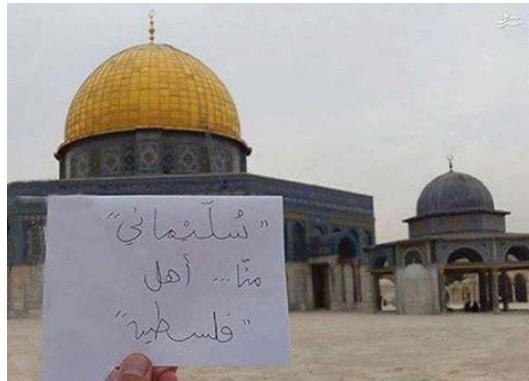 "سُلَيْماني"
منّا... أهل
"فلسطين"
مشرق